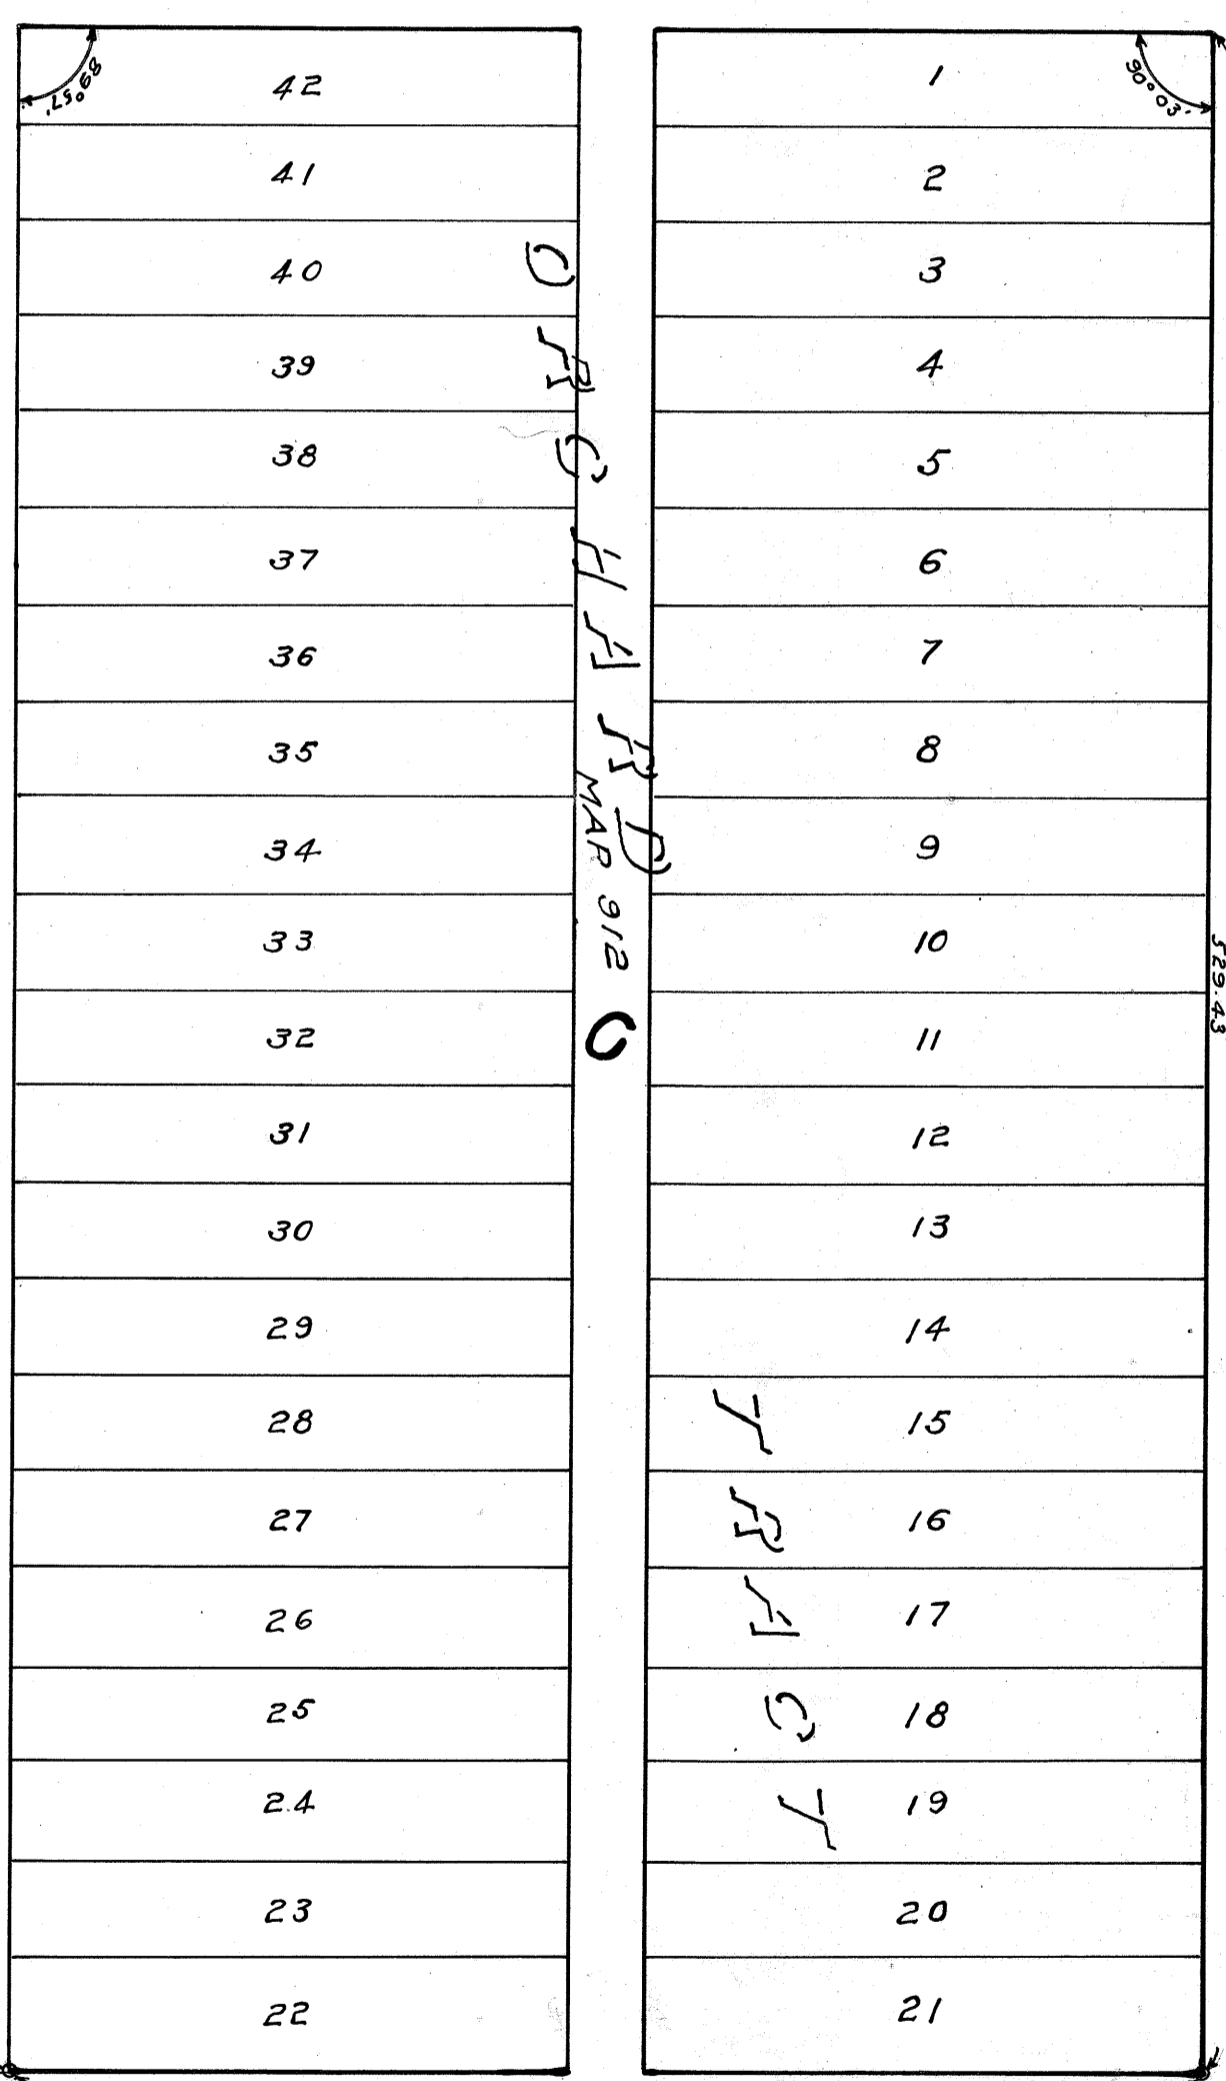 89°57'
42
41
40
39
38
37
36
35
34
33
32
31
30
29
28
27
26
25
24
23
22
ORCHARD
MAP 912
C
TRACT
90°03'
1
2
3
4
5
6
7
8
9
10
11
12
13
14
15
16
17
18
19
20
21
529.43